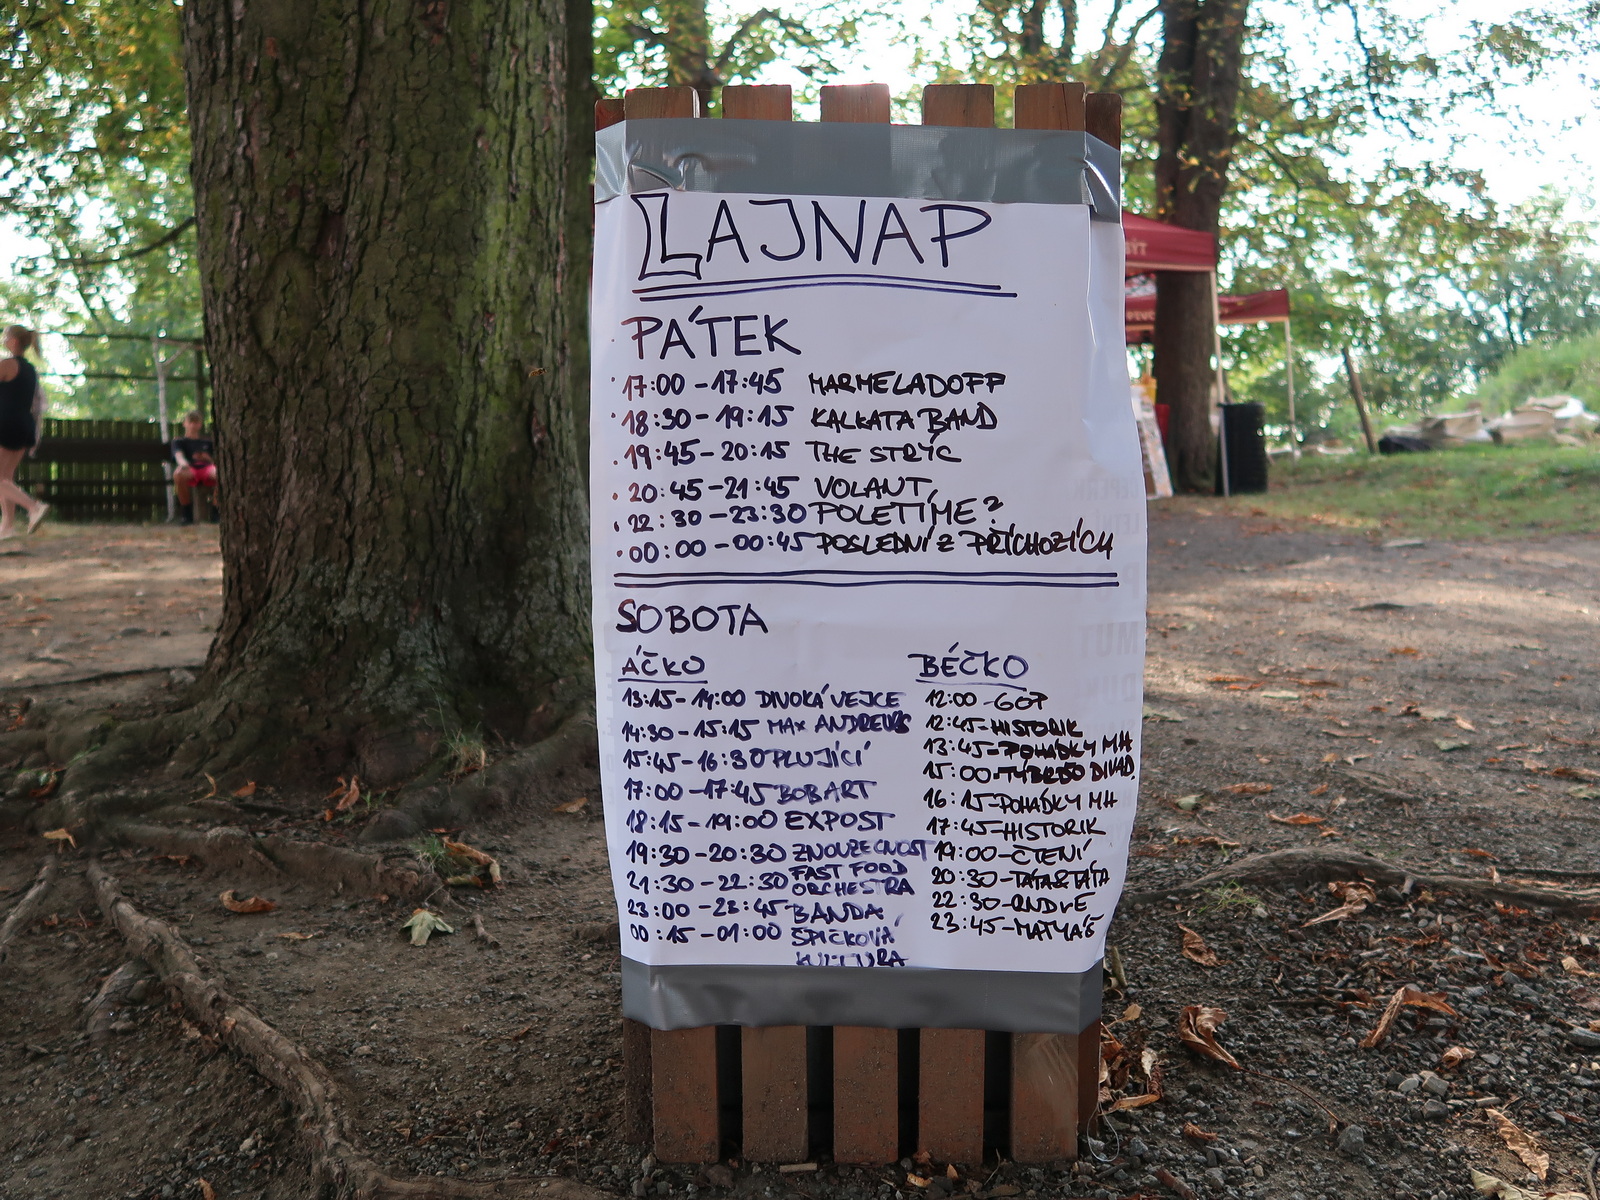 LAJNAP
PÁTEK
17:00 - 17:45 MARMELADOFF
18:30 - 19:15 KALKATA BAND
19:45 - 20:15 THE STRÝC
20:45 - 21:45 VOLANT,
22:30 - 23:30 POLETÍME?
00:00 - 00:45 POSLEDNÍ Z PŘÍCHOZÍCH
SOBOTA
ÁČKO
13:15 - 14:00 DIVOKÁ VEJCE
14:30 - 15:15 MAX ANDREWS
15:45 - 16:30 PLUJÍCÍ
17:00 - 17:45 BOBART
18:15 - 19:00 EXPOST
19:30 - 20:30 ZNOUZECNOST
21:30 - 22:30 FAST FOOD
ORCHESTRA
23:00 - 23:45 BANDA
00:15 - 01:00 ŠPIČKOVÁ
KULTURA
BÉČKO
12:00 - GOP
12:45 - HISTORIK
13:45 - POHÁDKY MH
15:00 - DIVAD.
16:15 - POHÁDKY MH
17:45 - HISTORIK
19:00 - ČTENÍ
20:30 - TÁTA & TÁTA
22:30 -
23:45 - MATYÁŠ